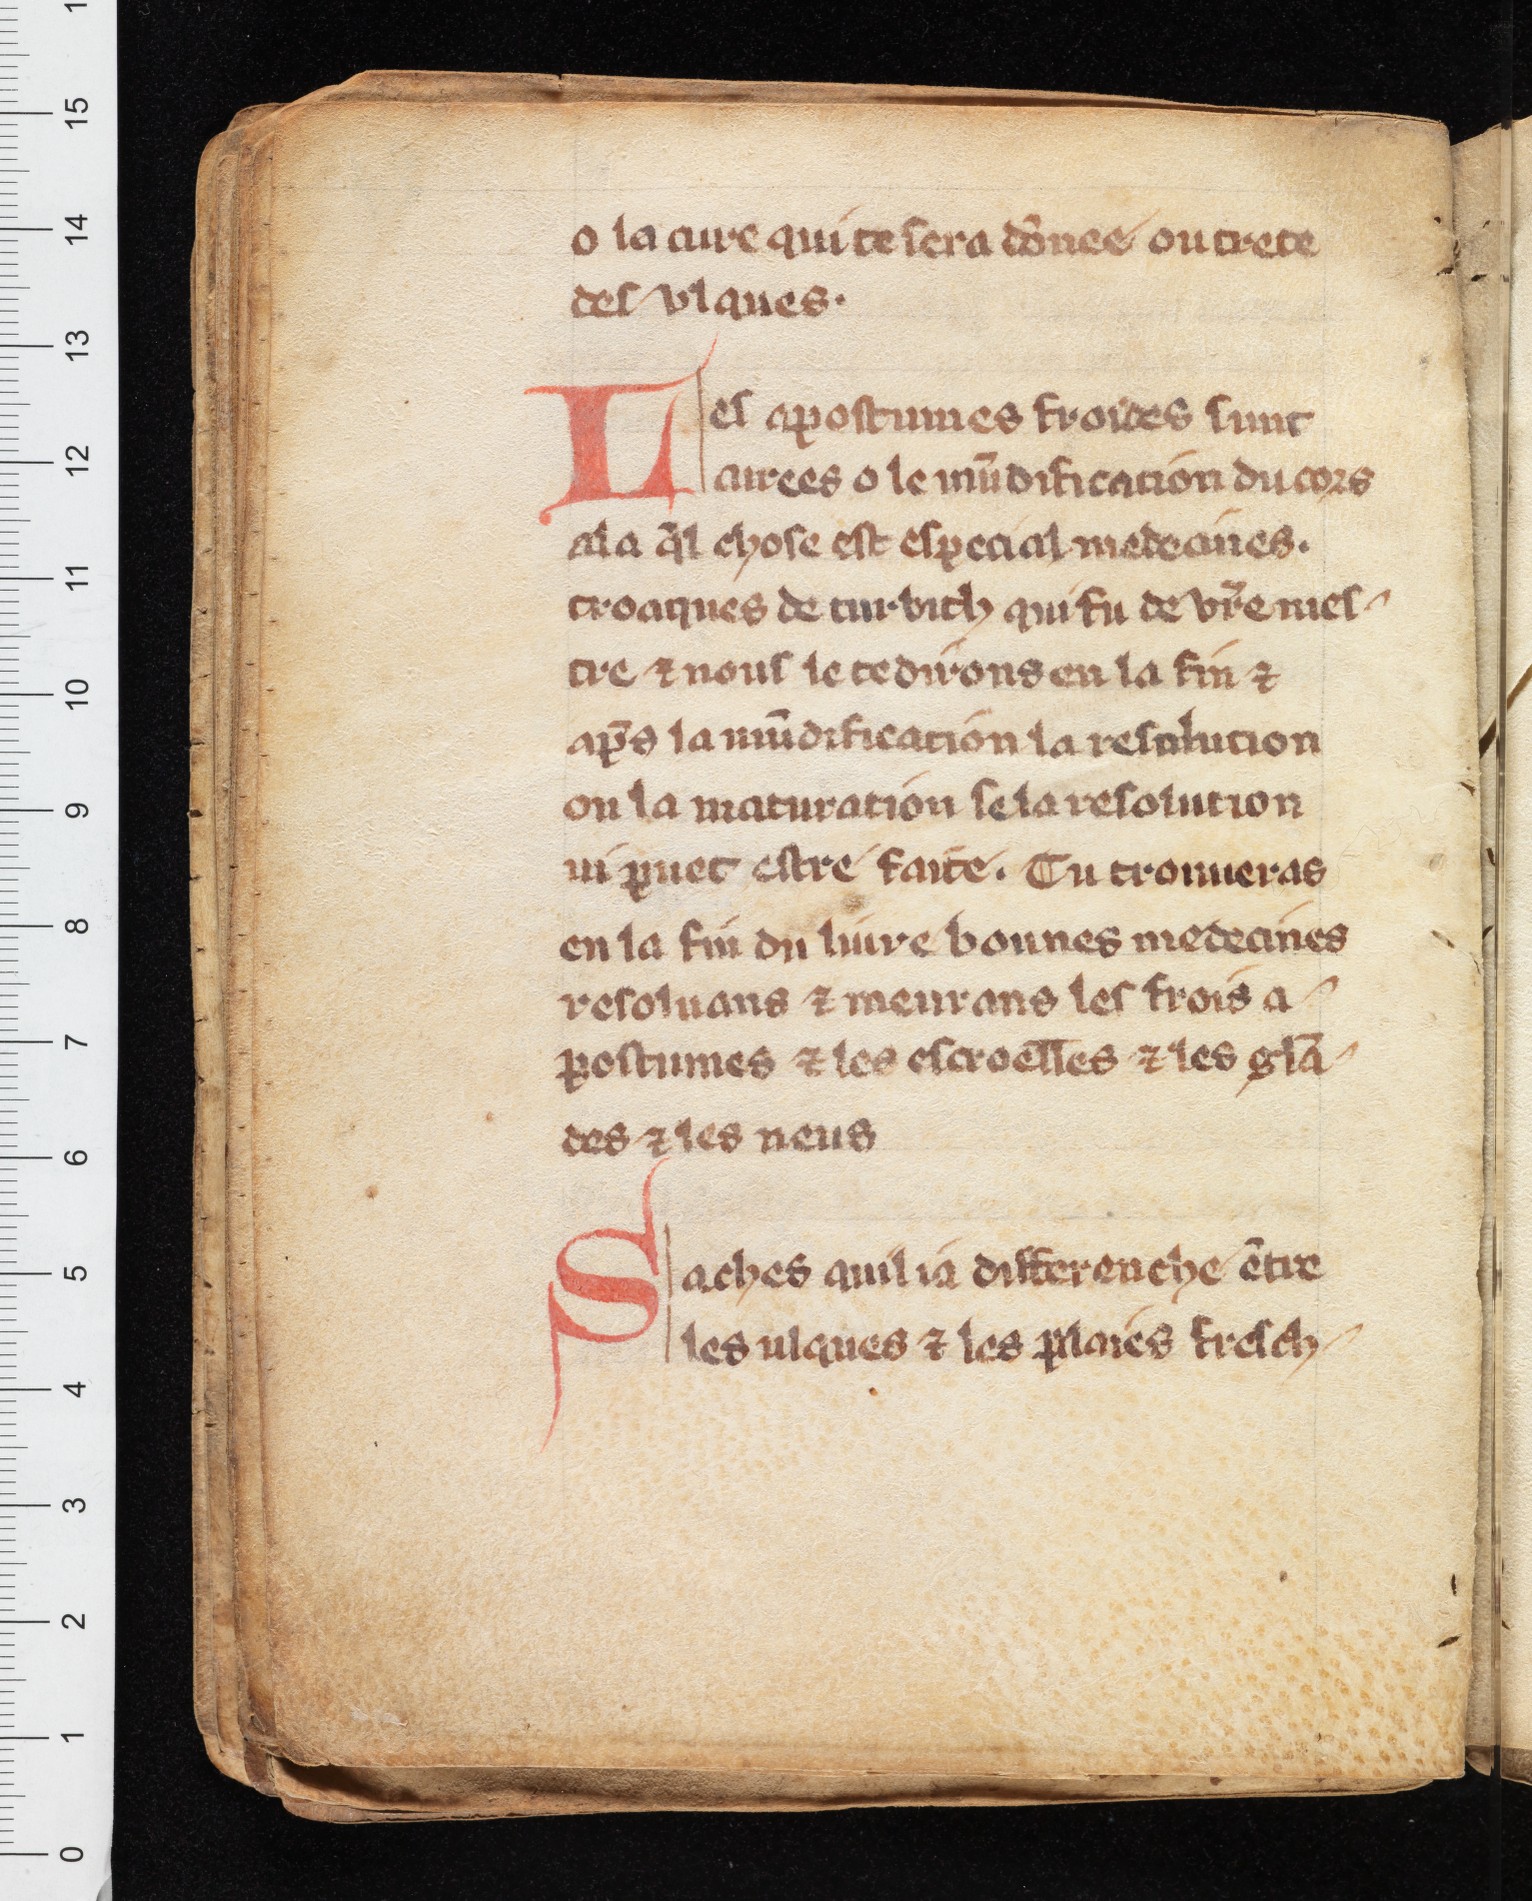 o la cure qui te sera dōnee ou trete
des vlques.
Les apostumes froides sunt
curees o le mūdification du cors
a la q̄l chose est especial medecines.
trociques de turbith qui fu de vr̄e mes
tre ⁊ nous le te dirons en la fin ⁊
ap̄s la mūdification la resolution
ou la maturation se la resolution
ni puet estre faite. Tu trouueras
en la fin du liure bonnes medecines
resoluans ⁊ meurans les frois a
postumes ⁊ les escroelles ⁊ les glā
des ⁊ les neus
Saches quil ia differenche ētre
les ulques ⁊ les plaies fresch
15
14
13
12
11
10
9
8
7
6
5
4
3
2
1
0